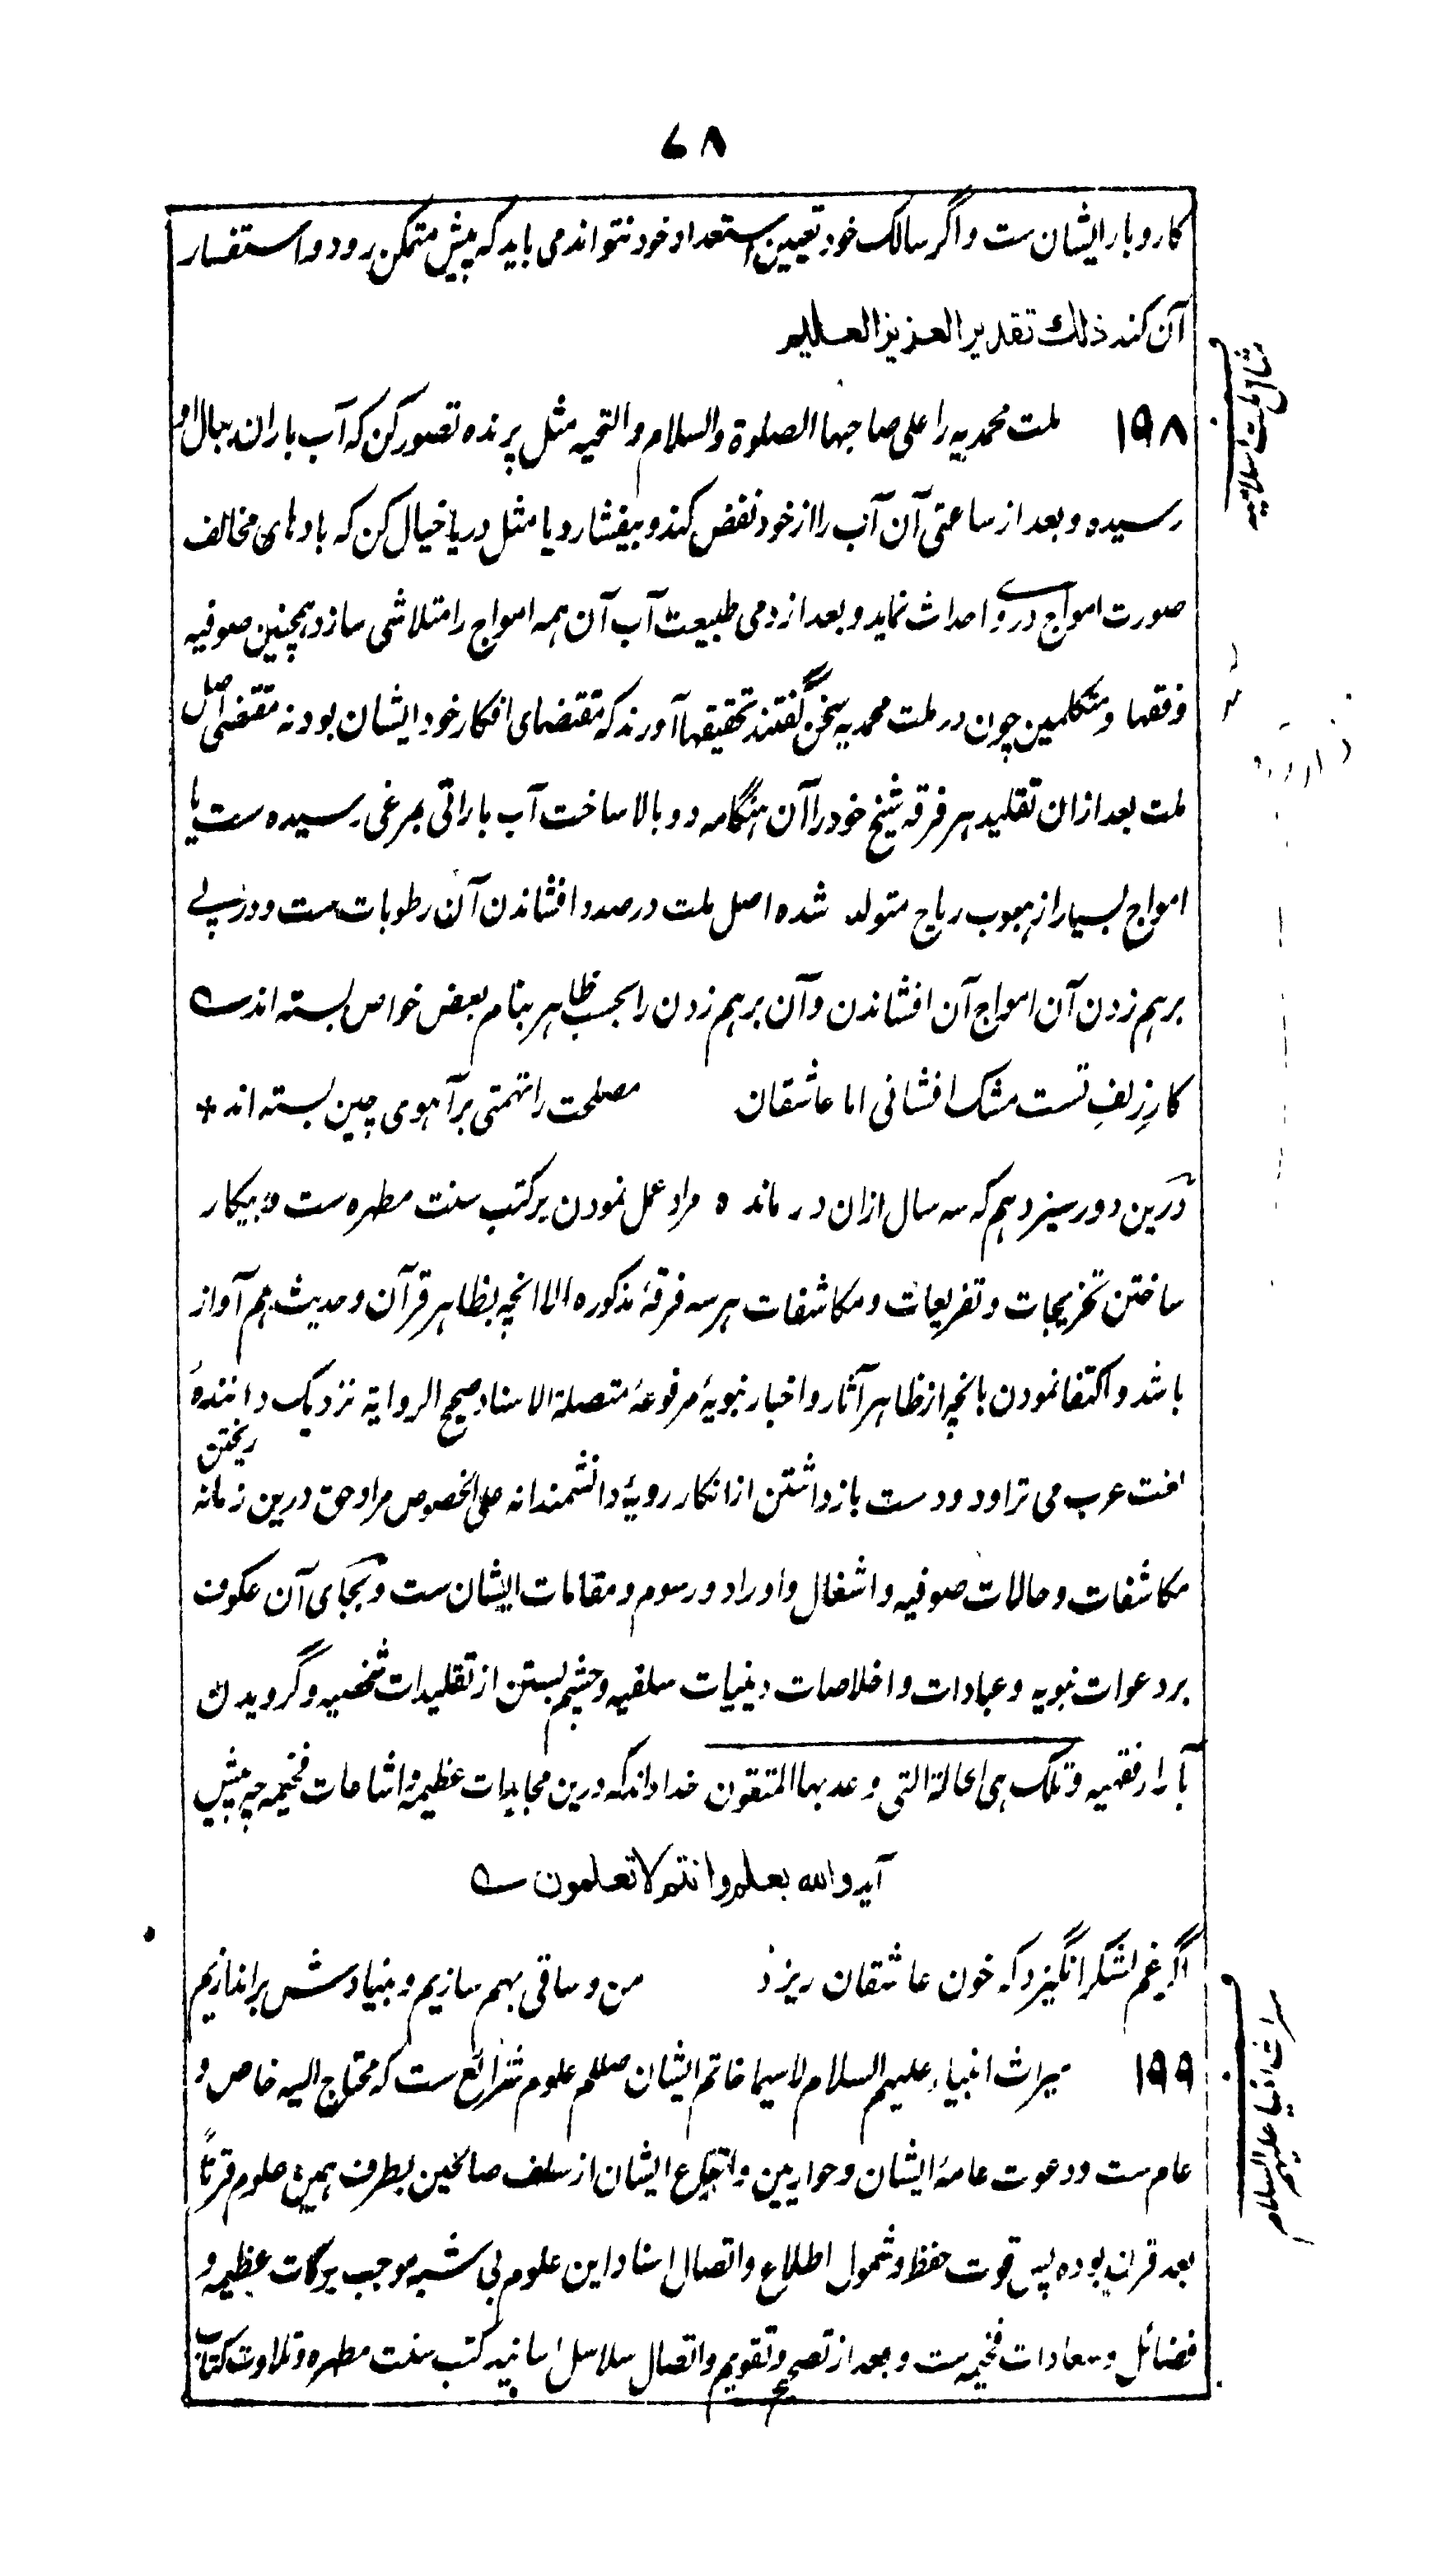 ۷۸
کاروبار ایشان ست و اگر سالک خود تعیین استعداد خود نتواند می باید که پیش متمکن رود و استفسار
آن کند ذلك تقدیر العزیز العلیم
مثال ملت اسلامیه
۱۹۸ ملت محمدیه را علی صاحبها الصلوة والسلام والتحیه مثل پرنده تصور کن که آب باران ببال او
رسیده و بعد از ساعتی آن آب را از خود نفض کند و بیفشارد یا مثل دریا خیال کن که بادهای مخالف
صورت امواج در وے احداث نماید و بعد از دمی طبیعت آب آن همه امواج را متلاشی سازد همچنین صوفیه
و فقها و متکلمین چون در ملت محمدیه سخن گفتند تحقیقها آورند که مقتضای افکار خود ایشان بود نه مقتضی اصل
ملت بعد ازان تقلید هر فرقه شیخ خود را آن هنگامه دوبالا ساخت آب بارانی بمرغی رسیده ست یا
امواج بسیار از هبوب ریاح متولد شده اصل ملت در صدد افشاندن آن رطوبات ست و در پے
برهم زدن آن امواج آن افشاندن و آن برهم زدن را بحسب ظاهر بنام بعض خواص بسته اند ے
کار زلفِ تست مشک افشانی اما عاشقان مصلحت را تهمتی بر آهوی چین بسته اند *
درین دور سیزدهم که سه سال ازان در مانده مراد عمل نمودن بر کتب سنت مطهره ست و بیکار
ساختن تخریجات و تفریعات و مکاشفات هر سه فرقۀ مذکوره الا انچه بظاهر قرآن و حدیث هم آواز
باشد و اکتفا نمودن بانچه از ظاهر آثار و اخبار نبویۀ مرفوعۀ متصلة الاسناد صحیح الروایة نزدیک دانندۀ
لغت عرب می تراود و دست باز داشتن از انکار رویۀ دانشمندانه علی الخصوص مراد حق درین زمانه ریختن
مکاشفات و حالات صوفیه و اشغال و اوراد و رسوم و مقامات ایشان ست و بجای آن عکوف
بر دعوات نبویه و عبادات و اخلاصات دینیات سلفیه و چشم بستن از تقلیدات شخصیه و گرویدن
بآراء فقهیه وتلک هی الحالة التی وعد بها المتقون خدا داند که درین مجاهدات عظیمه و اشاعات فخیمه چه پیش
آید والله یعلم وانتم لا تعلمون ے
اگر غم لشکر انگیزد که خون عاشقان ریزد من و ساقی بهم سازیم و بنیادش براندازیم
میراث انبیا علیهم السلام
۱۹۹ میراث انبیاء علیهم السلام لاسیما خاتم ایشان صللم علوم شرائع ست که محتاج الیه خاص و
عام ست و دعوت عامۀ ایشان و حواریین و اتباع ایشان از سلف صالحین بطرف همین علوم قرناً
بعد قرن بوده پس قوت حفظ و شمول اطلاع و اتصال اسناد این علوم بی شبه موجب برکات عظیمه و
فضائل و سعادات فخیمه ست و بعد از تصحیح و تقویم و اتصال سلاسل اسانید کتب سنت مطهره و تلاوت کتاب